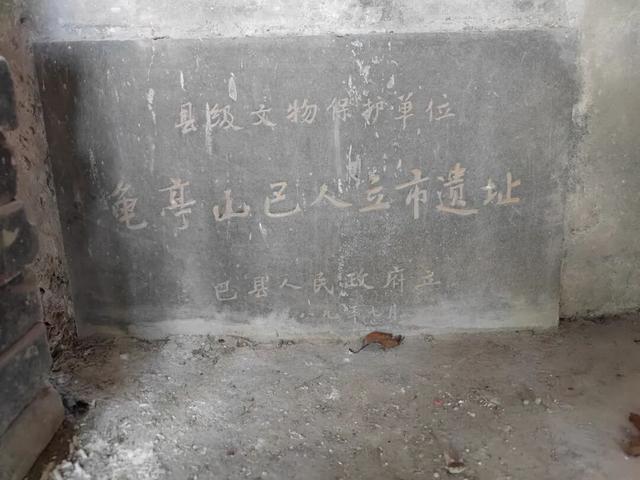 县级文物保护单位
龟亭山巴人立市遗址
巴县人民政府立
八九年七月